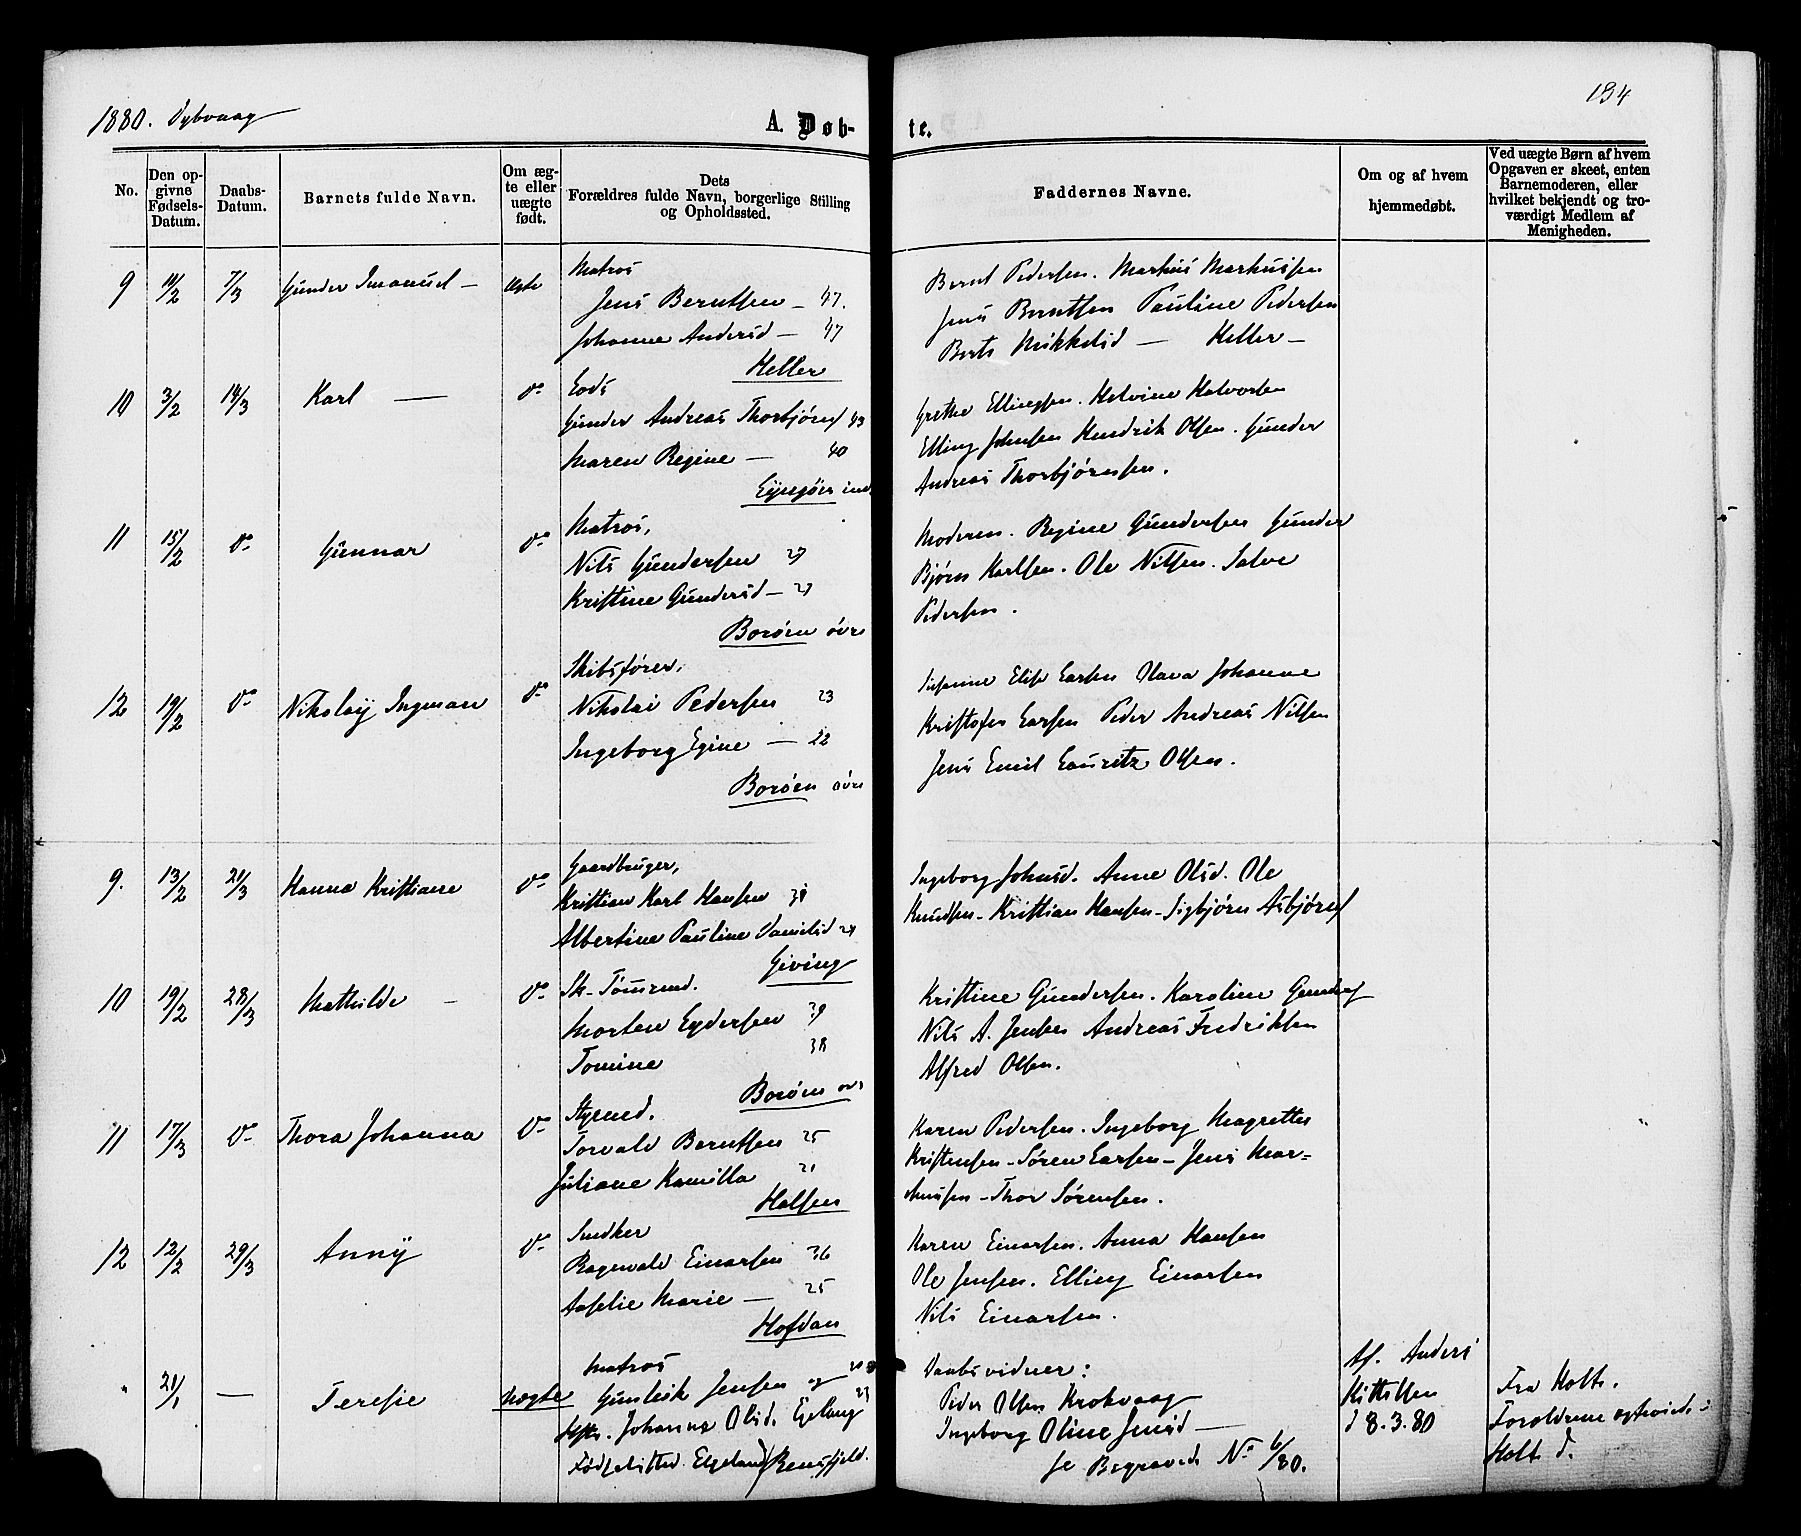 1880. Dybvaag
134
A. Døb-
te.
No.
Den op-
givne
Fødsels-
Datum.
Daabs-
Datum.
Barnets fulde Navn.
Om æg-
te eller
uægte
født.
Dets
Forældres fulde Navn, borgerlige Stilling
og Opholdssted.
Faddernes Navne.
Om og af hvem
hjemmedøbt.
Ved uægte Børn af hvem
Opgaven er skeet, enten
Barnemoderen, eller
hvilket bekjendt og tro-
værdigt Medlem af
Menigheden.
9 11/2 7/3 Gunder Imanuel — ægte
Matros
Jens Berntsen — 47.
Johanne Andersd — 47
Heller
Bernt Pedersen. Markus Markussen
Jens Berntsen Pauline Pedersen
Berte Mikkelsd — Heller —
10 3/2 14/3 Karl — do
Lods
Gunder Andreas Thorbjørns 43
Maren Regine — 40
Grethe Ellingsen. Helvine Halvorsen
Elling Johnsen Hendrik Olsen. Gunder
Andreas Thorbjørnsen.
11 15/2 do Gunnar do
Matros,
Nils Gundersen 27
Kristine Gundersd — 27
Borøen øvre
Moderen. Regine Gundersen Gunder
Bjørn Karlsen. Ole Nilsen. Salve
Pedersen.
12 19/2 do Nikolay Ingman do
Skibsfører,
Nikolai Pedersen 23
Ingeborg Egine — 22
Borøen øvre
Susanne Elise Larsen Olava Johanne
Kristofer Larsen Peder Andreas Nilsen
Jens Emil Lauritz Olsen.
9. 13/2 21/3 Hanna Kristiane do
Gaardbruger,
Kristian Karl Hansen
Albertine Pauline Danielsd
Giving
Ingeborg Johnsd. Anne Olsd. Ole
Knudsen — Kristian Hansen — Sigbjørn Asbjørns
10 19/2 28/3 Mathilde — do
Sk-Tømmd.
Morten Eydersen 39
Tomine 38
Borøen øvr
Kristine Gundersen. Karoline Gunders
Nils A. Jensen Andreas Fredriksen
Alfred Olsen.
11 17/3 do Thora Johanna do
Styrmd.
Torvald Berntsen 25
Juliane Kamilla 21
Halsen
Karen Pedersen. Ingeborg Magrethe
Kristensen — Søren Larsen — Jens Mar=
kussen — Thor Sørensen.
12 12/2 29/3 Anny do
Snedker
Ragnvald Einarsen 36
Aaselie Marie — 25
Hofdan
Karen Einarsen. Anna Hansen
Ole Jensen. Elling Einarsen
Nils Einarsen.
" 21/1 — Teresie uægte
Matros
Gunleik Jensen og
Johanne Olsd. Egeland
Fødselssted. Egeland
Daabsvidner:
Peder Olsen Krokvaag
Ingeborg Oline Jensd —
Begraved No 6/80.
Af. Anders
Kittilsen
d 8.3.80
Fra Holt.
Forældrene
Holt d.